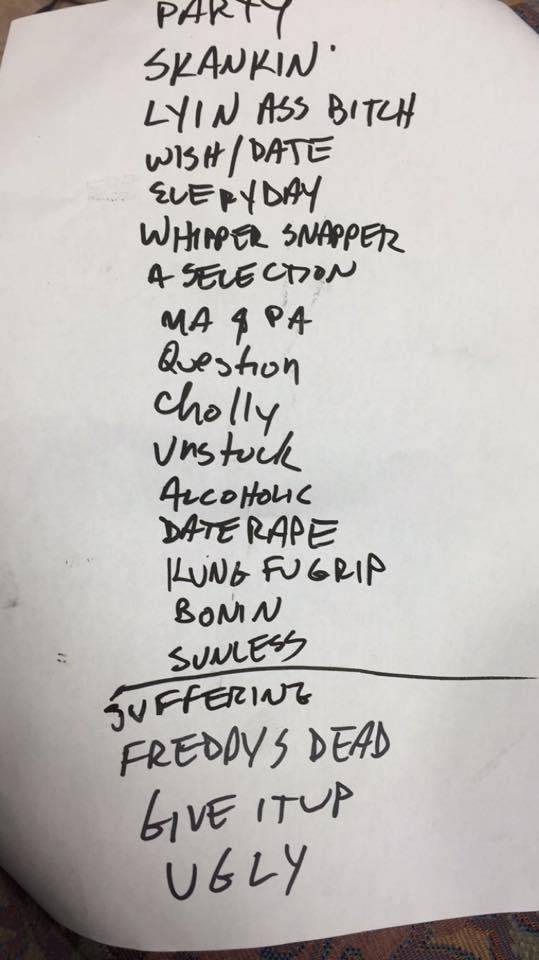 PARTY
SKANKIN'
LYIN ASS BITCH
WISH/DATE
EVERYDAY
WHIPPER SNAPPER
A SELECTION
MA & PA
Question
Cholly
Unstuck
ALCOHOLIC
DATE RAPE
KUNG FU GRIP
BONIN
SUNLESS
SUFFERING
FREDDYS DEAD
GIVE IT UP
UGLY